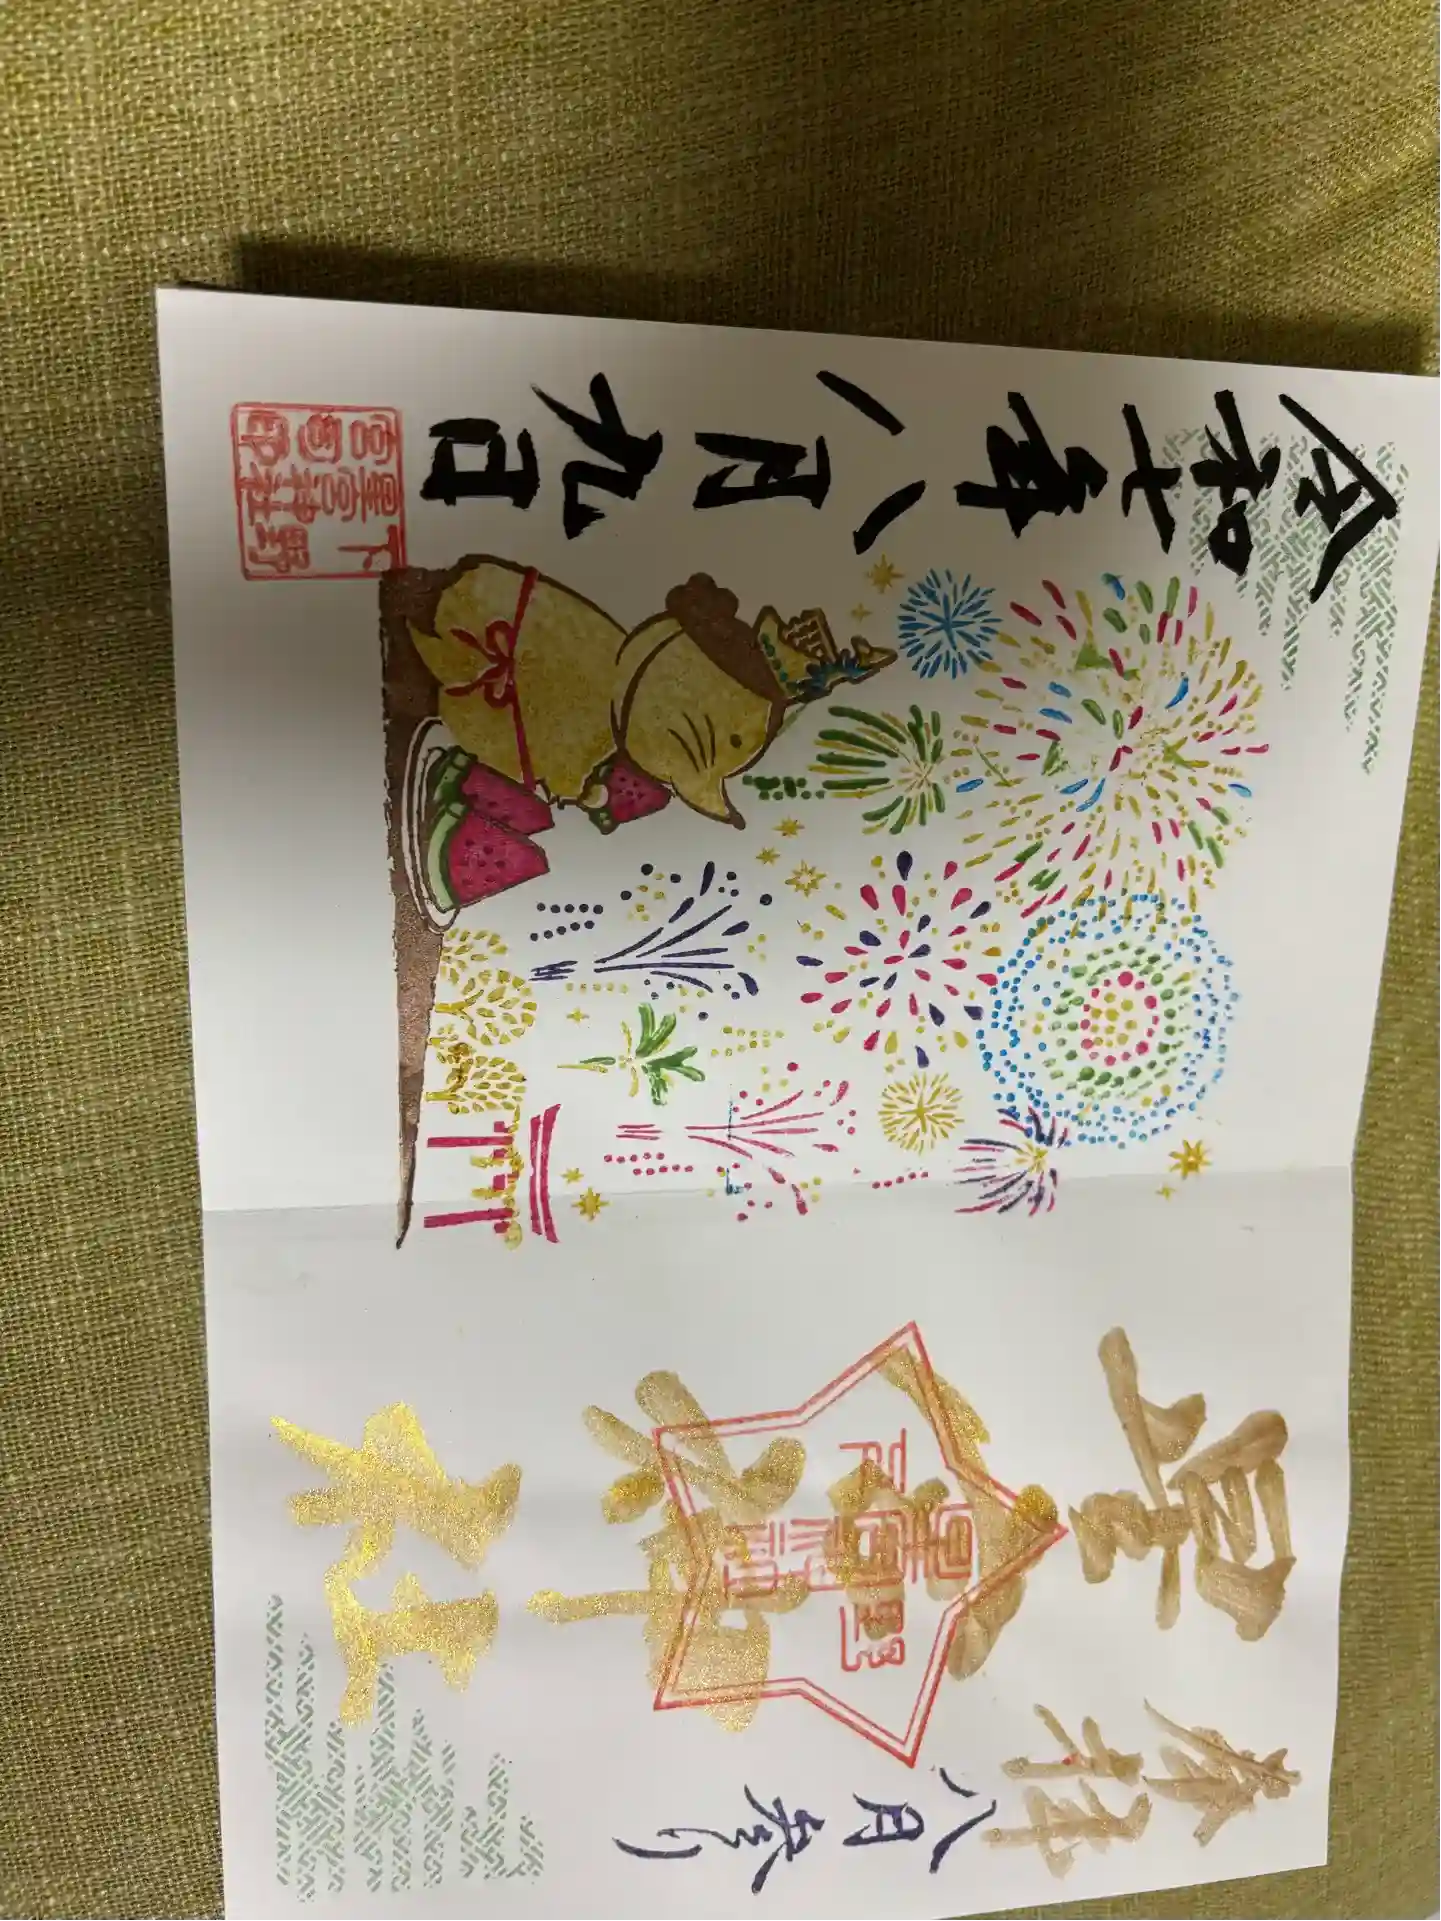 奉拝
八月参り
星宮神社
下野
星宮神社
令和七年八月九日
下野
星宮神社
宮司印